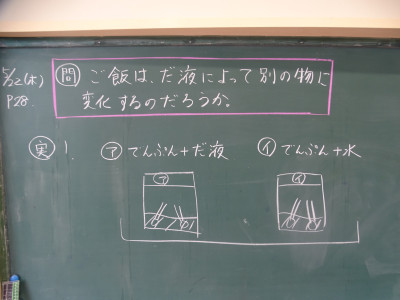 5/12(木)
P28.
問 ご飯は、だ液によって別の物に
変化するのだろうか。
実 1. ア でんぷん+だ液
イ でんぷん+水
ア
イ